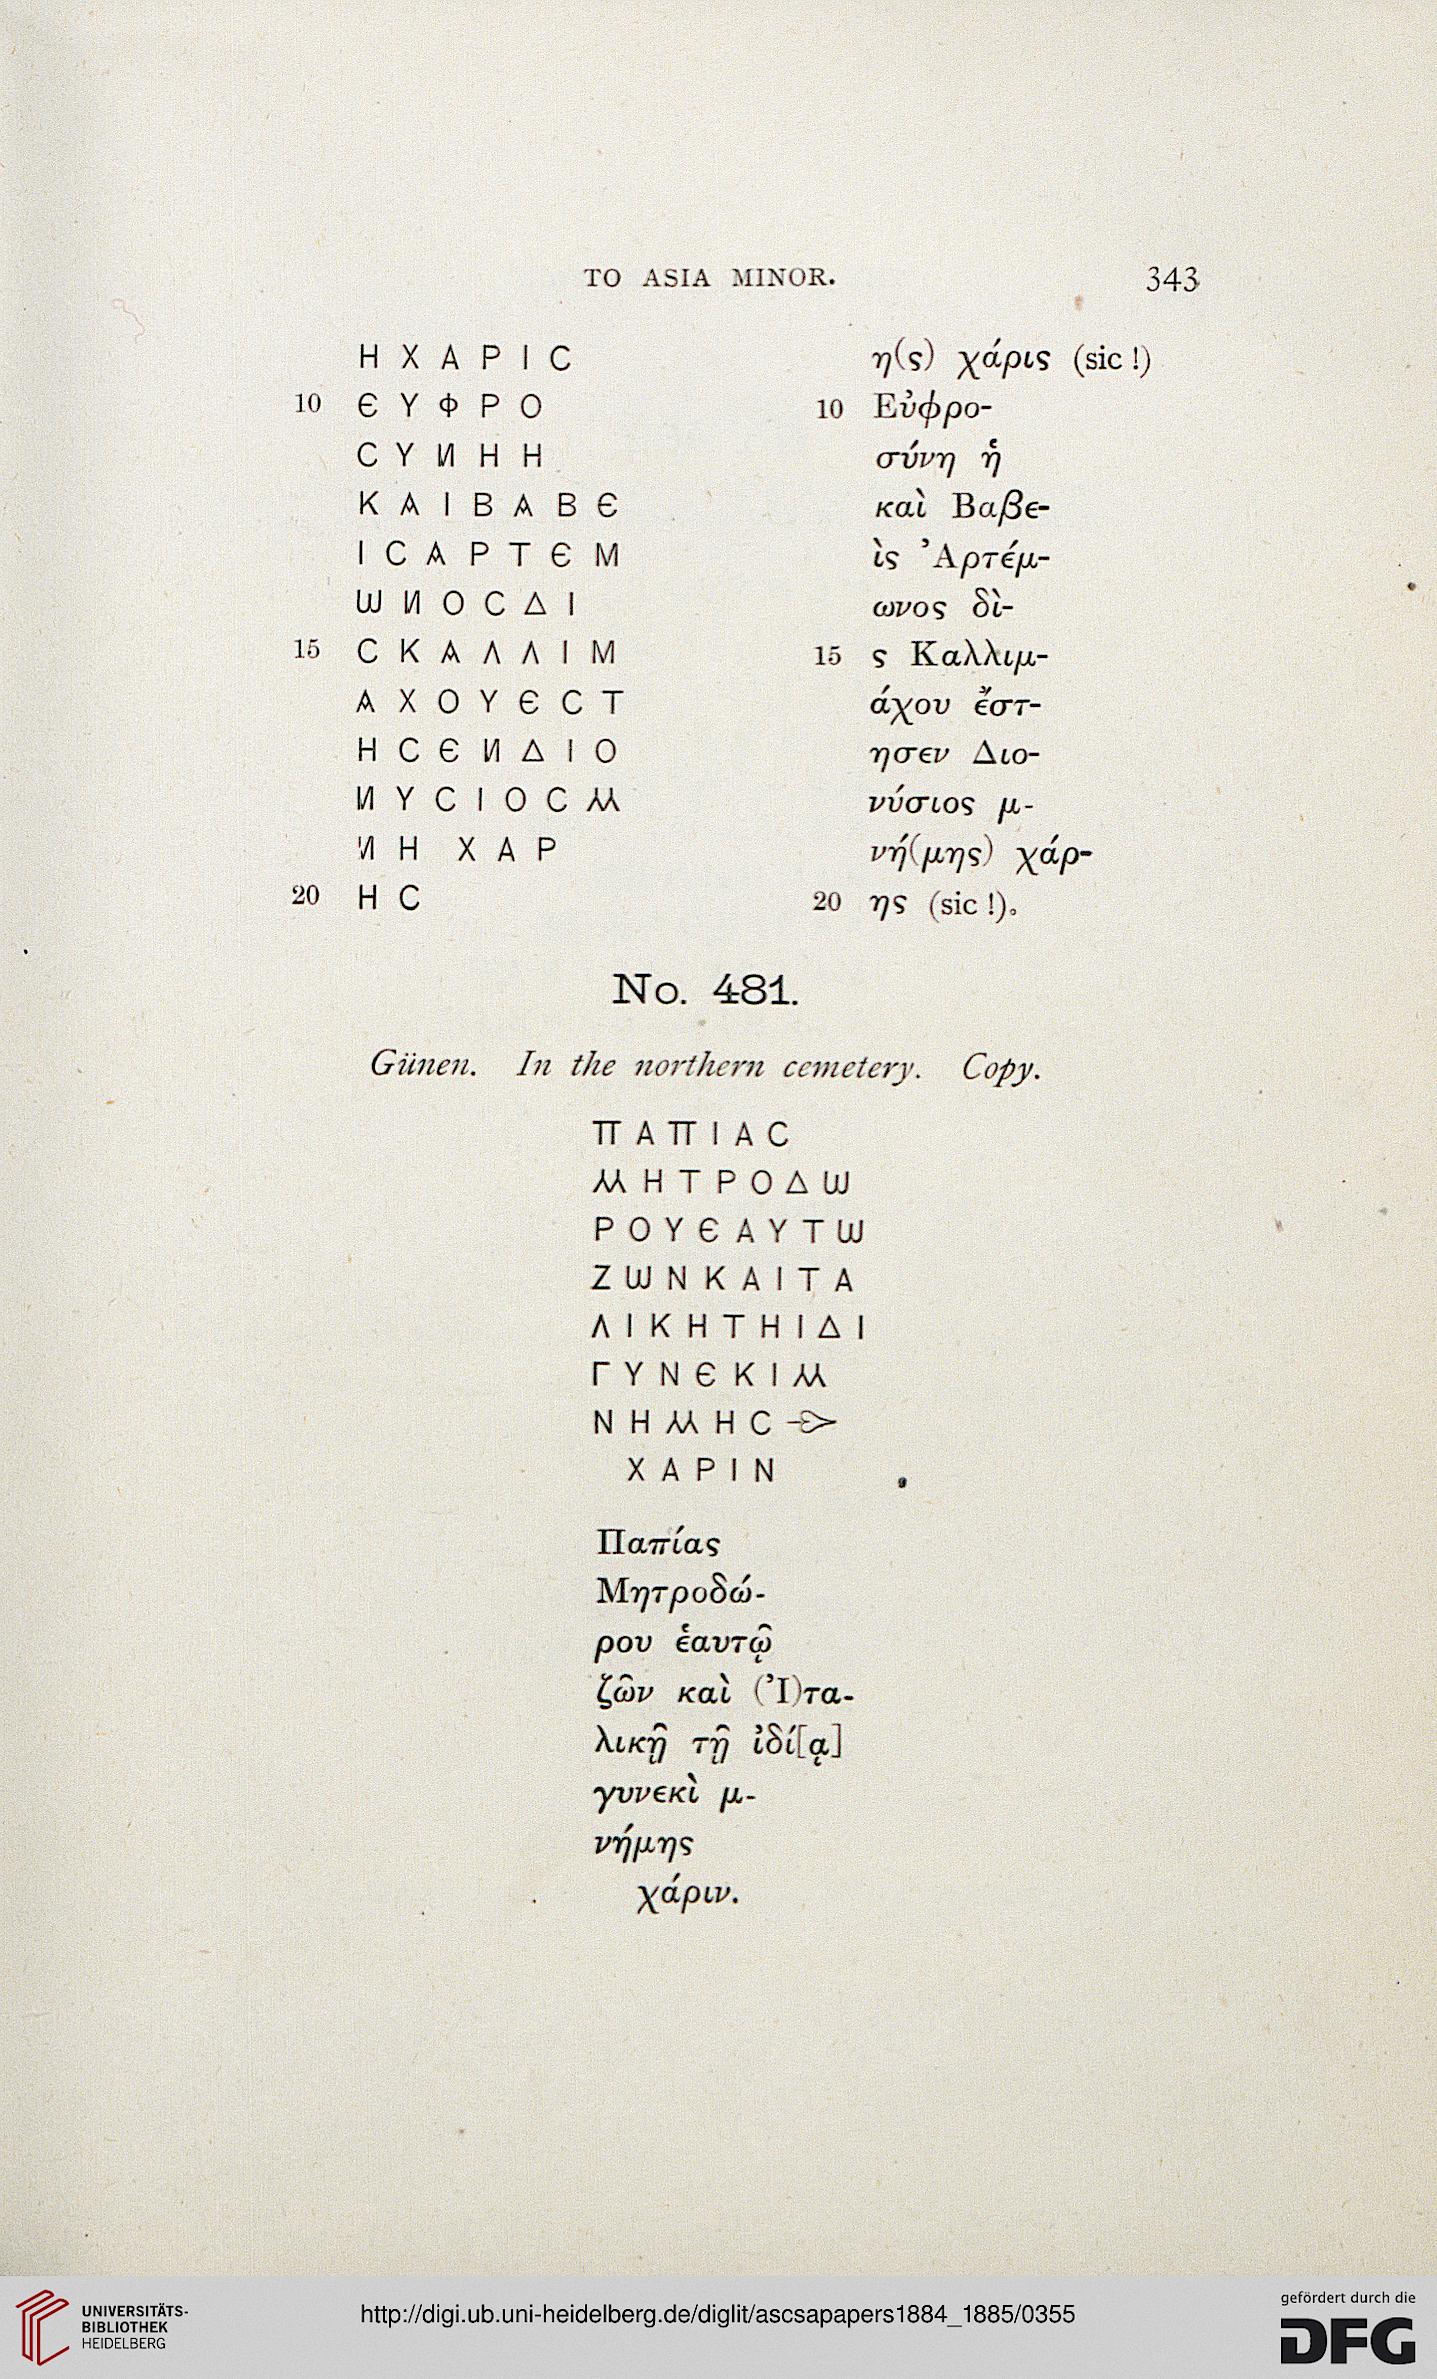 TO ASIA MINOR. 343
Η Χ Α Ρ Ι C
10 Є Υ Φ Ρ Ο
C Υ И Η Η
Κ Α Ι Β Α Β Є
Ι C Α Ρ Τ Є Μ
Ш И Ο C Δ Ι
15 C Κ Α Λ Λ Ι Μ
Α Χ Ο Υ Є C Τ
Η C Є И Δ Ι Ο
И Υ C Ι Ο C Μ
И Η Χ Α Ρ
20 Η C
η(ς) χάρις (sic !)
10 Εὐφρο-
σύνη ἡ
καὶ Βαβε-
ὶς Ἀρτέμ-
ωνος δὶ-
15 ς Καλλιμ-
άχου ἔστ-
ησεν Διο-
νύσιος μ-
νή(μης) χάρ-
20 ης (sic !).
No. 481.
Günen. In the northern cemetery. Copy.
Π Α Π Ι Α C
Μ Η Τ Ρ Ο Δ Ш
Ρ Ο Υ Є Α Υ Τ Ш
Ζ Ш Ν Κ Α Ι Τ Α
Λ Ι Κ Η Τ Η Ι Δ Ι
Γ Υ Ν Є Κ Ι Μ
Ν Η Μ Η C ☙
Χ Α Ρ Ι Ν
Παπίας
Μητροδώ-
ρου ἑαυτῷ
ζῶν καὶ (Ἰ)τα-
λικῇ τῇ ἰδί[ᾳ]
γυνεκὶ μ-
νήμης
χάριν.
UNIVERSITÄTS-
BIBLIOTHEK
HEIDELBERG
http://digi.ub.uni-heidelberg.de/diglit/ascsapapers1884_1885/0355
gefördert durch die
DFG